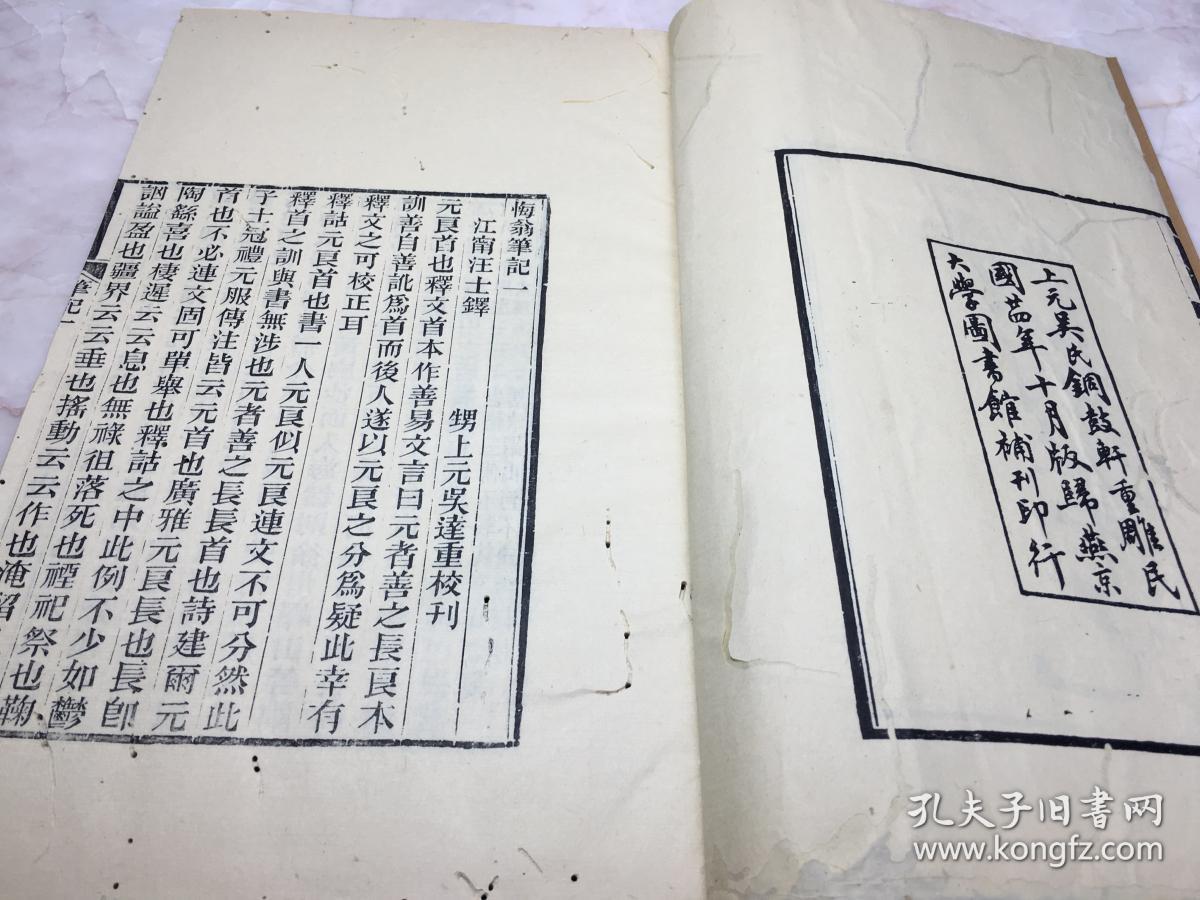 上元吳氏銅鼓軒重雕民
國廿四年十月版歸燕京
大學圖書館補刊印行
悔翁筆記一
江甯汪士鐸 甥上元吳達重校刊
元良首也釋文首本作善易文言曰元者善之長良本
訓善自善訛爲首而後人遂以元良之分爲疑此幸有
釋文之可校正耳
釋詁元良首也書一人元良似元良連文不可分然此
釋首之訓與書無涉也元者善之長長首也詩建爾元
子士冠禮元服傳注皆云元首也廣雅元良長也長卽
首也不必連文固可單舉也釋詁之中此例不少如鬱
陶繇喜也棲遲云云息也無祿祖落死也禋祀祭也鞠
訩謚盈也疆界云云垂也搖動云云作也淹留
筆記一
孔夫子旧书网
www.kongfz.com